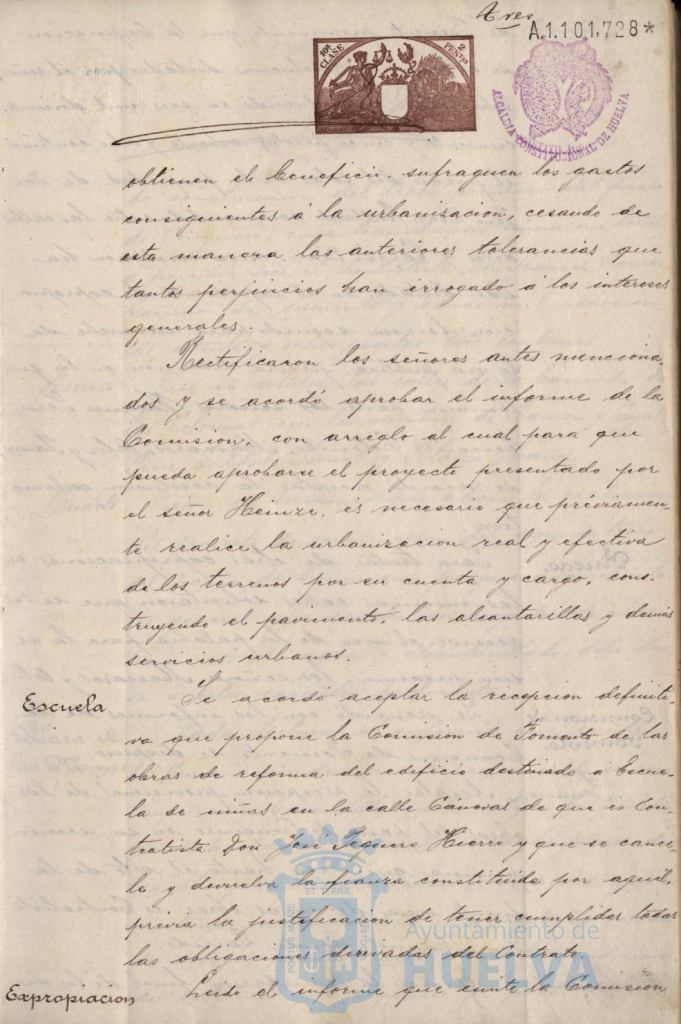 tres
A.1.101.728*
10ª CLASE
2 PESTAS
ALCALDIA CONSTITUCIONAL DE HUELVA
obtienen el beneficio, sufraguen los gastos
consiguientes á la urbanizacion, cesando de
esta manera las anteriores tolerancias que
tantos perjuicios han irrogado á los intereses
generales.
Rectificaron los señores antes menciona-
dos y se acordó aprobar el informe de la
Comision, con arreglo al cual para que
pueda aprobarse el proyecto presentado por
el señor Heinze, és necesario que préviamen-
te realice la urbanizacion real y efectiva
de los terrenos por su cuenta y cargo, cons-
truyendo el pavimento, las alcantarillas y demás
servicios urbanos.
Escuela
Se acordó aceptar la recepcion definiti-
va que propone la Comision de Fomento de las
obras de reforma del edificio destinado á Escue-
la de niñas en la calle Cánovas de que és Con-
tratista Don José Hierro y que se cance-
le y devuelva la fianza constituida por aquél,
prévia la justificacion de tener cumplidas todas
las obligaciones derivadas del Contrato.
Expropiacion
Leido el informe que emite la Comision
Ayuntamiento de
HUELVA